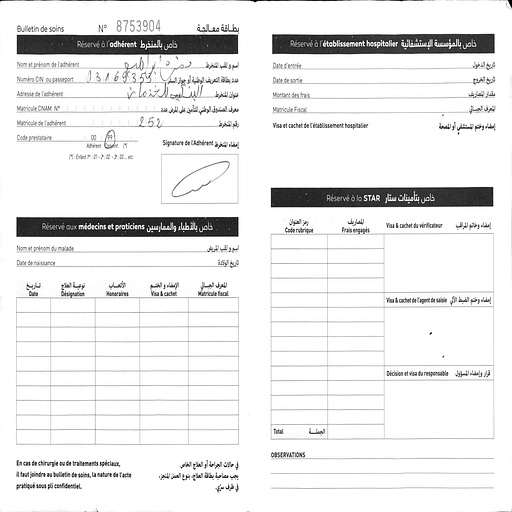 Bulletin de soins N° 8753904 بطاقة معالجة
Réservé à l'adhérent خاص بالمنخرط
Nom et prénom de l'adhérent اسم و لقب المنخرط
Numéro CIN ou passeport 03169355 عدد بطاقة التعريف الوطنية أو جواز السفر
Adresse de l'adhérent عنوان المنخرط
Matricule CNAM N° معرف الصندوق الوطني للتأمين على المرض عدد
Matricule de l'adhérent 252 رقم المنخرط
Code prestataire 00 99 Signature de l'Adhérent إمضاء المنخرط
Adhérent Conjoint (*)
(*) : Enfant 1er : 01 - 2: 02 - 3: 03 ... etc
Réservé aux médecins et praticiens خاص بالأطباء والممارسين
Nom et prénom du malade اسم و لقب المريض
Date de naissance تاريخ الولادة
تاريخ نوعية العلاج الأتعاب الإمضاء و الختم المعرف الجبائي
Date Désignation Honoraires Visa & cachet Matricule fiscal
En cas de chirurgie ou de traitements spéciaux,
il faut joindre au bulletin de soins, la nature de l'acte
pratiqué sous pli confidentiel.
في حالات الجراحة أو العلاج الخاص
يجب مصاحبة بطاقة العلاج، بنوع العمل المنجز،
في ظرف سري.
Réservé à l'établissement hospitalier خاص بالمؤسسة الإستشفائية
Date d'entrée تاريخ الدخول
Date de sortie تاريخ الخروج
Montant des frais مقدار المصاريف
Matricule Fiscal المعرف الجبائي
Visa et cachet de l'établissement hospitalier إمضاء وختم المستشفى أو المصحة
Réservé à la STAR خاص بتأمينات ستار
رمز العنوان المصاريف
Code rubrique Frais engagés
Visa & cachet du vérificateur إمضاء وخاتم المراقب
Visa & cachet de l'agent de saisie إمضاء وختم الضبط الآلي
Décision et visa du responsable قرار وإمضاء المسؤول
Total الجملة
OBSERVATIONS